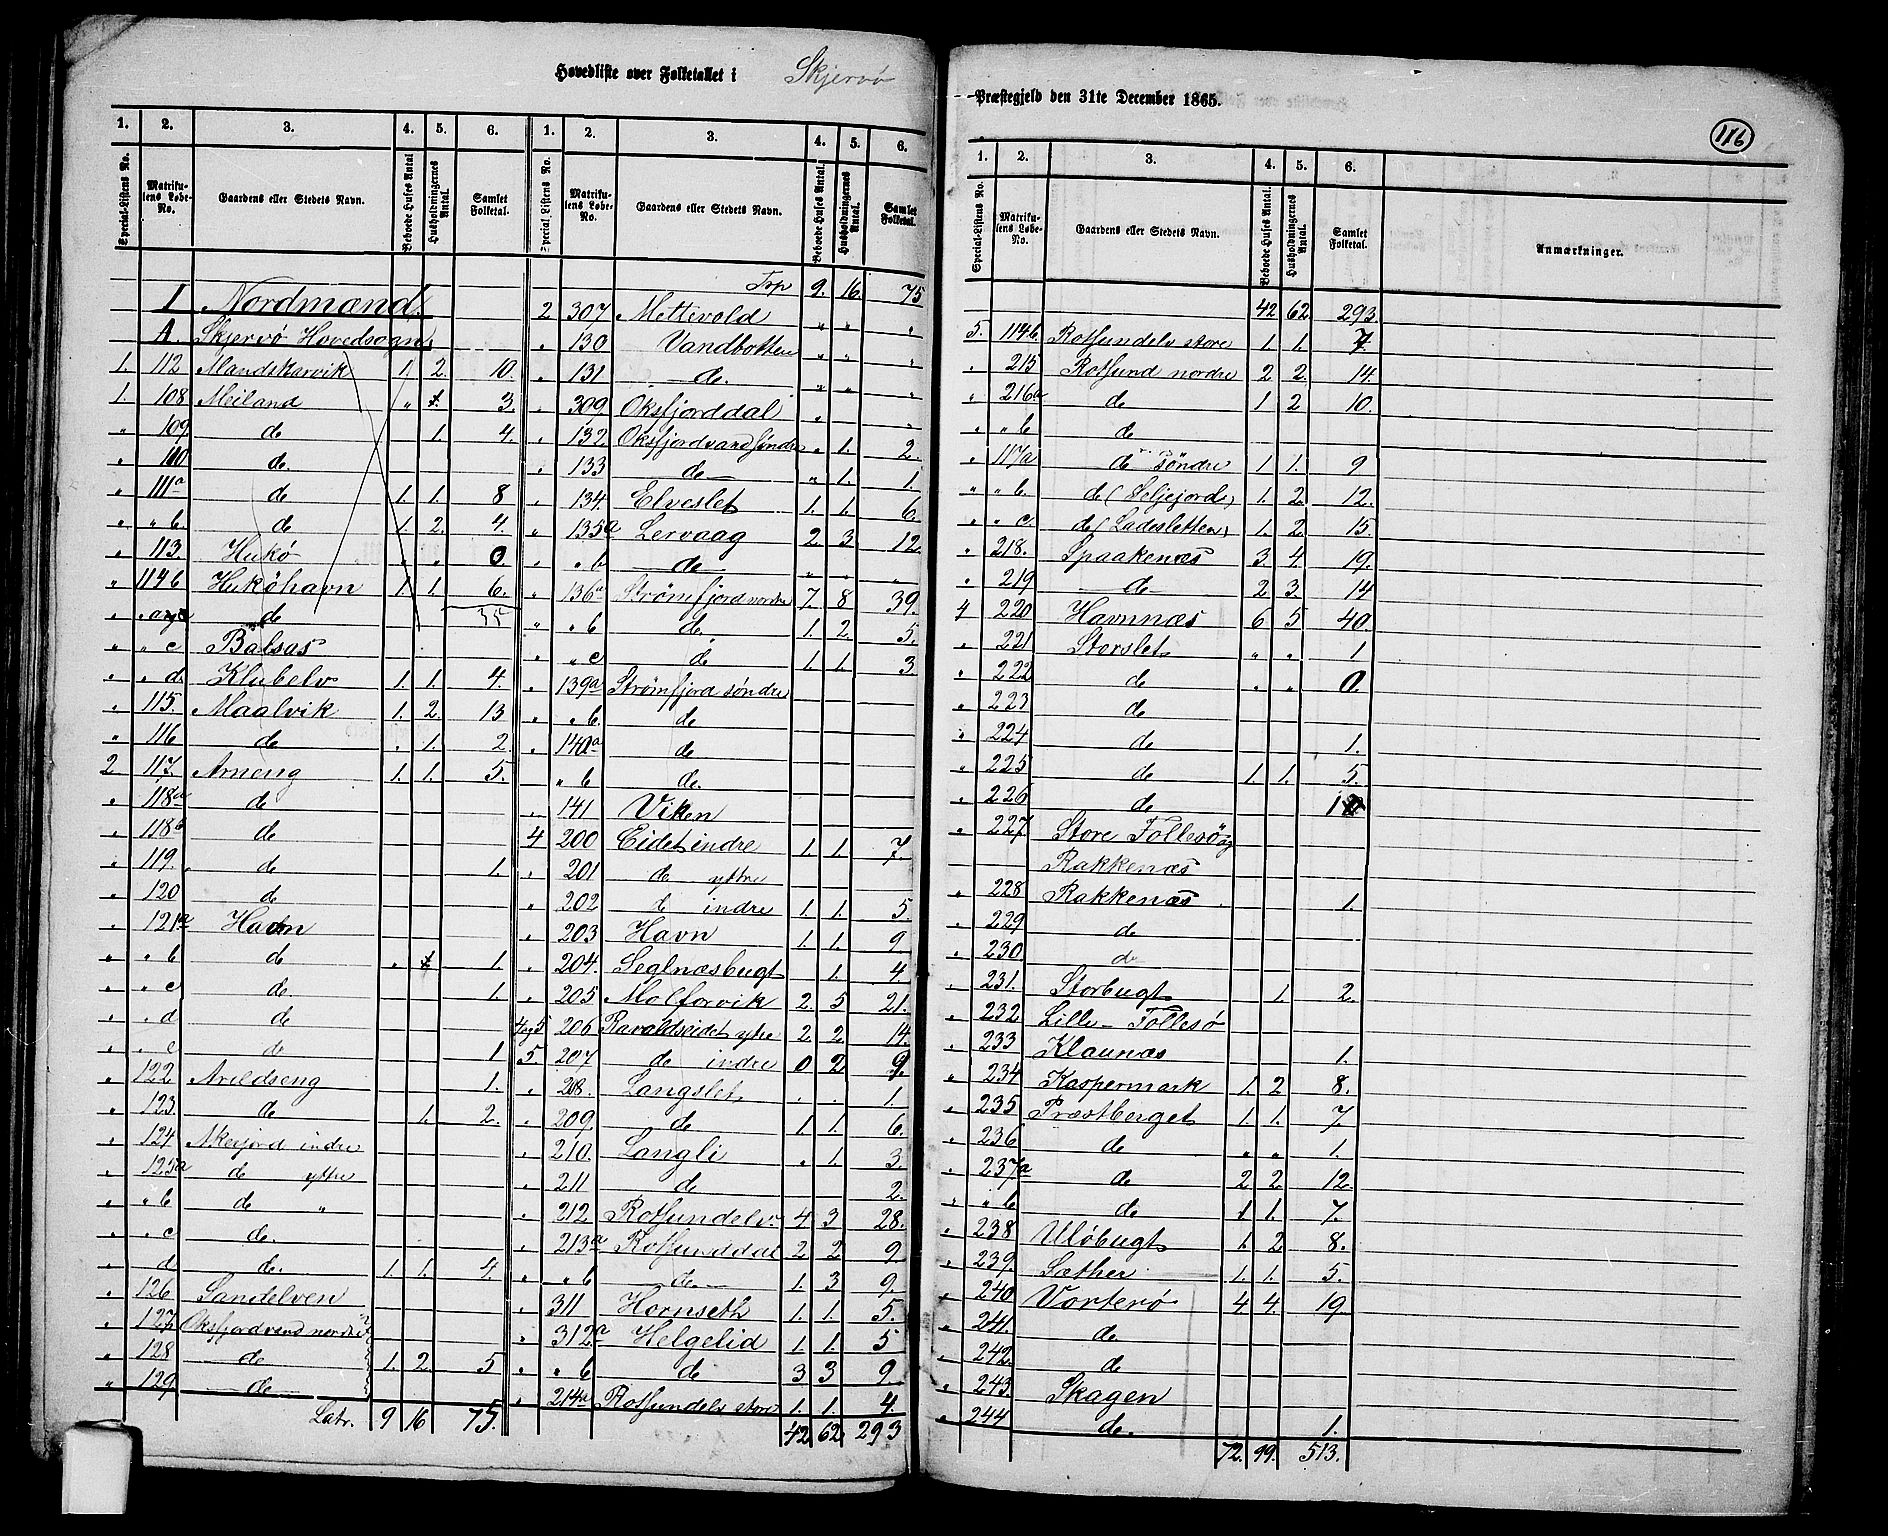 Hovedliste over Folketallet i Skjervö
Præstegjeld den 31te December 1865.
116
1. 2. 3. 4. 5. 6. 1. 2. 3. 4. 5. 6.
Special-Listens No. Matrikulens Løbe-No. Gaardens eller Stedets Navn. Beboede Huses Antal Husholdningernes Antal. Samlet Folketal. Special.Listens No. Matrikulens Løbe-No. Gaardens eller Stedets Navn. Beboede Huses Antal. Husholdningernes Antal. Samlet Folketal.
I Nordmænd.
A. Skjervö Hovedsogn
1. 112 Mandskarvik 1. 2. 10.
1. 108 Meiland " 1. 3.
" 109. de 1. 4.
" 110 de.
" 111a de 1. 1. 8
" " b. de 1. 2. 4.
" 113. Hukö " " 0
" 114b Huköhavn 1. 1. 6.
" de 35
" " c Balsas
" " d. Klubelv 1. 1. 4.
" 115. Maalvik 1. 2. 13
" 116 de " 1. 2.
2 117. Arneng 1. 1. 5.
" 118a de
" 118b de
" 119. de 1.
" 120 de
" 121a Havn
" " b de " 1 1.
" " c de 1.
" " d de
" " e de 1
" 122 Arildseng 1.
" 123. de 1. 2.
" 124 Akerjord indre
" 125a de yttre
" " b de "
" " c de.
" d de. 1. 1. 4.
" 126 Sandelven
" 127 Oksfjordvand nordre
" 128 de 1. 2. 5
" 129 de
Latr. 9 16 75.
Trp 9. 16. 75
2 307 Mettevold " " "
" 130 Vandbotten " " "
" 131 de. " " "
" 309 Oksfjorddal "
" 132 Oksfjordvand söndre " 1. 2.
" 133 de " 1. 1.
" 134. Elveslet 1. 1. 6.
" 135a Lervaag 2. 3 12.
" " b de " " "
" 136a Strömfjord nordre 7. 8 39.
" " b de 1. 2 5.
" " c de 1. 1. 3.
" 139a Strömfjord söndre
" " b. de
" 140a de
" b de.
" 141 Viken
4 200 Eidet indre 1. 1. 7.
" 201 de yttre
" 202 de indre 1. 1. 5.
" 203 Havn 1. 1. 9
" 204. Seglnæsbugt 1. 4.
" 205 Molforvik 2. 5 21.
4og5 206 Ravaldseidet yttre 2. 2. 14.
5 207 de indre 0 2 9.
" 208. Langslet " " 1.
" 209. de 1. 1. 6.
" 210. Langli " 1. 3.
" 211 de 2.
" 212 Rotsundelv 4 3 28.
" 213a Rotsunddal 2 2 9
" " b de 1. 3 9.
" 311 Hornseth 1. 1. 5.
" 312a Helgelid 1. 1. 5
" " b de 3 3 9.
" 214a Rotsundelv store 1. 1. 4.
42 62 293
1. 2. 3. 4. 5. 6.
Special-Listens No. Matrikulens Løbe-No. Gaardens eller Stedets Navn. Beboede Huses Antal. Husholdningernes Antal. Samlet Folketal. Anmærkninger.
42 62. 293.
5. Rotsundelv store 1. 1. 7.
" 215 Rotsund nordre 2 2. 14.
" 216a de 1 2 10.
" " b de
" de söndre 1 1. 9
" " b. de (Seljejord) 1. 2. 12.
" " c. de (Ladesletten) 1. 2. 15.
" 218. Spaakenæs 3. 4. 19.
" 219 de 2 3. 14
4 220 Havnnæs 6 5 40.
" 221 Storslet " " 1
" 222 de " " 0.
" 223 de
" 224 de 1.
" 225 de 1. 1. 5.
" 226 de
" 227 Store Follesö og
Rakkenæs
" 228 Rakkenæs 1.
" 229 de
" 230 de
" 231. Storbugt 1. 2.
" 232 Lille Follesö
" 233 Klaunæs 1.
" 234 Kaspermark 1. 2 8.
" 235 Præstberget 1. 1. 7.
" 236 de " " 1.
" 237a de 2 2. 12.
" " b de 1 1. 7.
" 238 Ulöbugt 1. 2 8.
" 239. Sæther 1. 1. 5.
" 240 Vorterö 4 4. 19
" 241. de
" 242. de
" 243. Skagen
" 244 de. 1.
72. 99. 513.